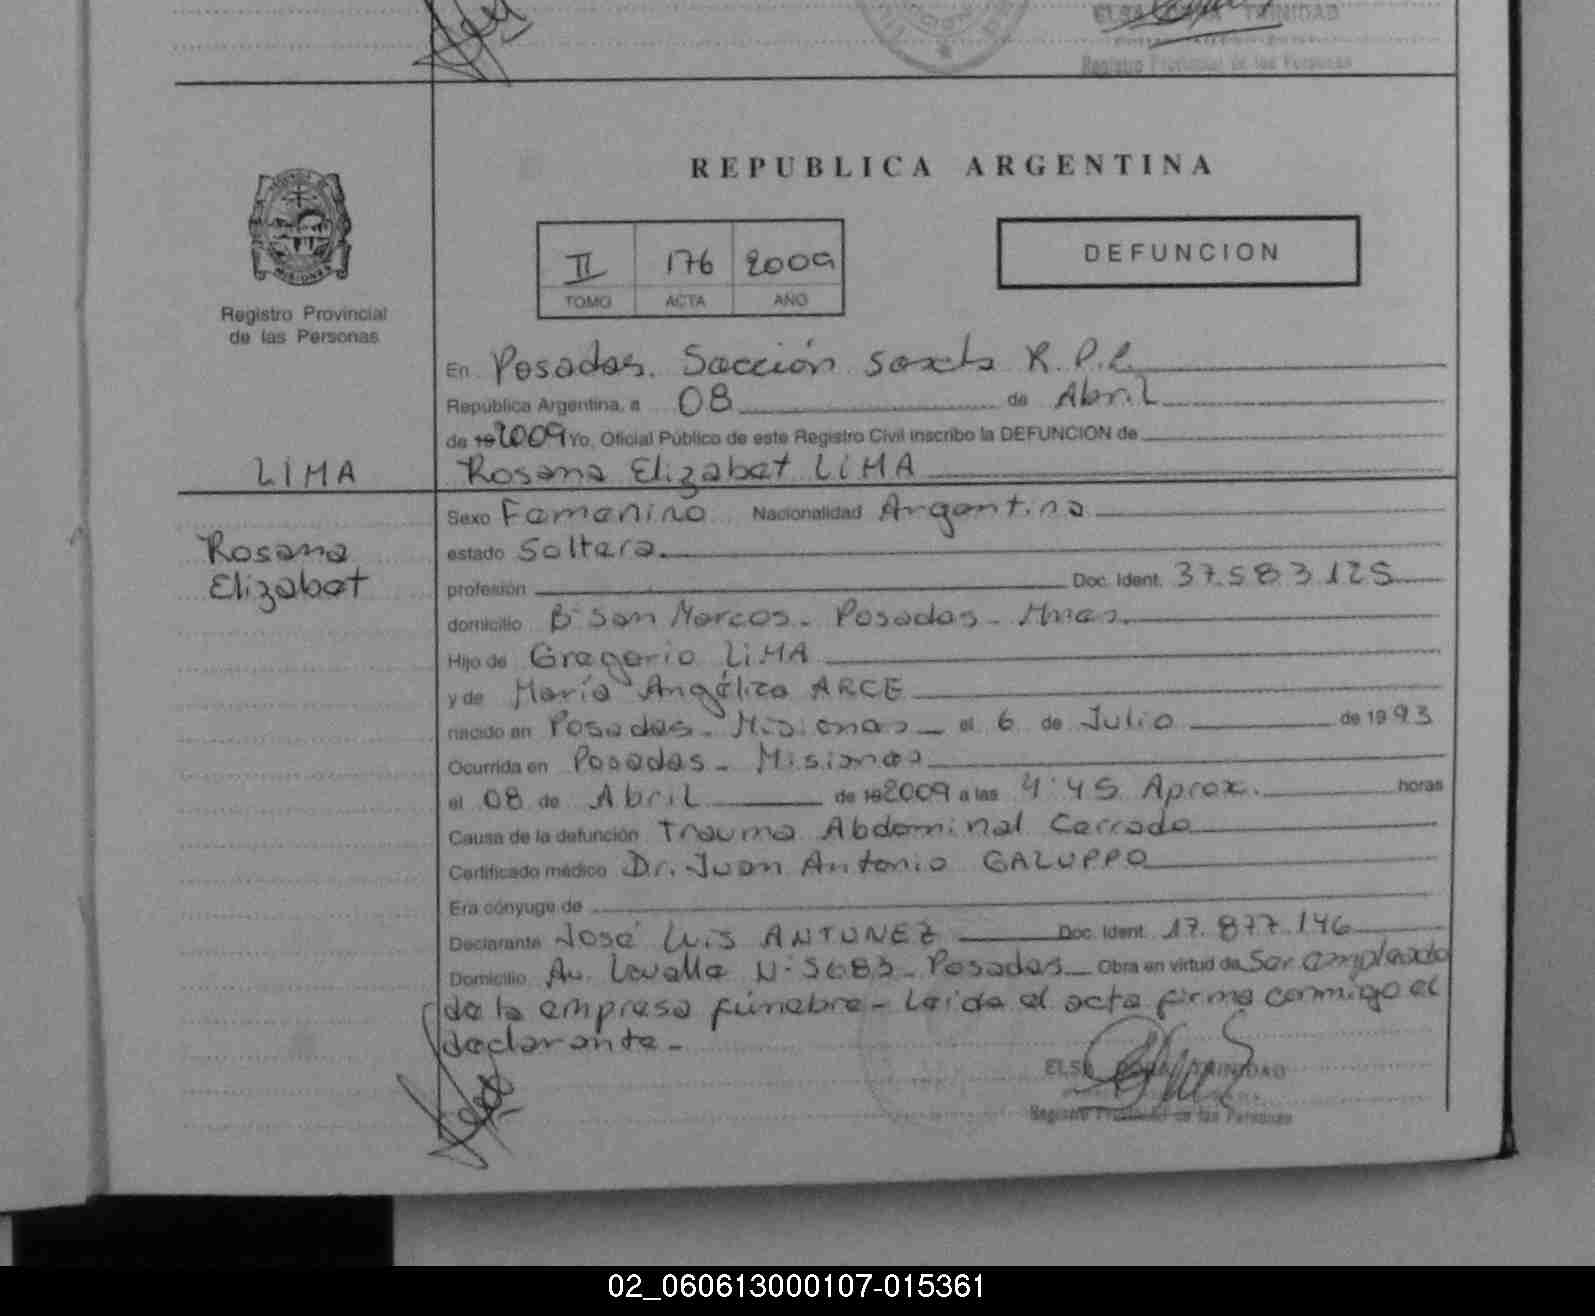 ELSA TRINIDAD
Registro Provincial de las Personas
MISIONES
Registro Provincial
de las Personas
REPUBLICA ARGENTINA
II 176 2009
TOMO ACTA AÑO
DEFUNCION
En Posadas. Sección sexta R.P.P.
República Argentina, a 08 de Abril
de 19 2009 Yo, Oficial Público de este Registro Civil inscribo la DEFUNCION de
LIMA
Rosana Elizabet LIMA
Rosana
Elizabet
Sexo Femenino Nacionalidad Argentina
estado Soltera.
profesión Doc. Ident. 37.583.125
domicilio B° San Marcos - Posadas - Mnes.
Hijo de Gregorio LIMA
y de María Angélica ARCE
nacido en Posadas - Misiones - el 6 de Julio de 1993
Ocurrida en Posadas - Misiones
el 08 de Abril de 19 2009 a las 4:45 Aprox. horas
Causa de la defunción Trauma Abdominal Cerrado
Certificado médico Dr. Juan Antonio GALUPPO
Era cónyuge de
Declarante José Luis ANTUNEZ Doc. Ident. 17.877.146
Domicilio Av. Lavalle N° 3683 - Posadas - Obra en virtud de Ser empleado
de la empresa fúnebre - Leída el acta firma conmigo el
declarante -
ELSA TRINIDAD
Registro Provincial de las Personas
02_060613000107-015361